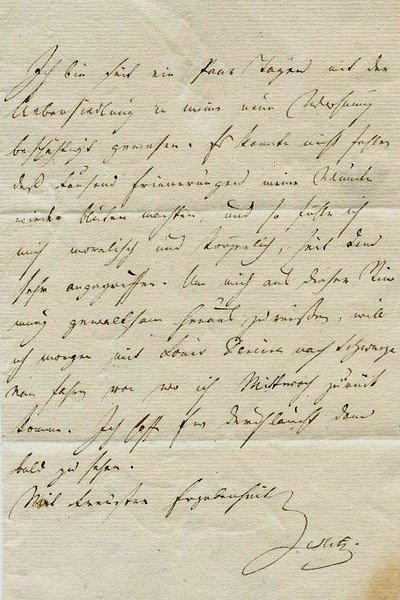 Ich bin seit ein Paar Tagen mit der
Uebersiedlung in meine neue Wohnung
beschäftigt gewesen. Es konnte nicht fehlen
daß tausend Erinnerungen meine Wunde
wieder bluten machten, und so fühle ich
mich moralisch und körperlich, seit dem
sehr angegriffen. Um mich aus dieser Stim
mung gewaltsam heraus zu reißen, will
ich morgen mit Louis nach
fahren von wo ich Mittwoch zurück
komme. Ich hoffe Ew Durchlaucht dann
bald zu sehen.
Mit treuster Ergebenheit